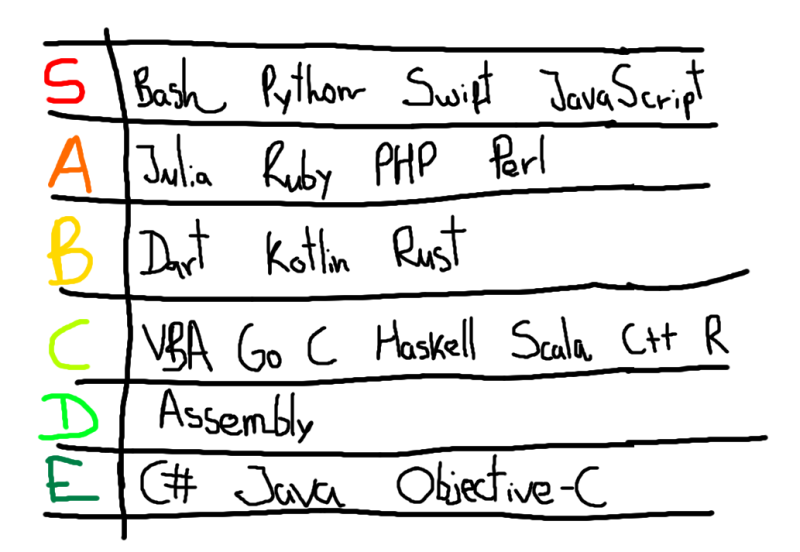 S Bash Python Swift JavaScript
A Julia Ruby PHP Perl
B Dart Kotlin Rust
C VBA Go C Haskell Scala C++ R
D Assembly
E C# Java Objective-C